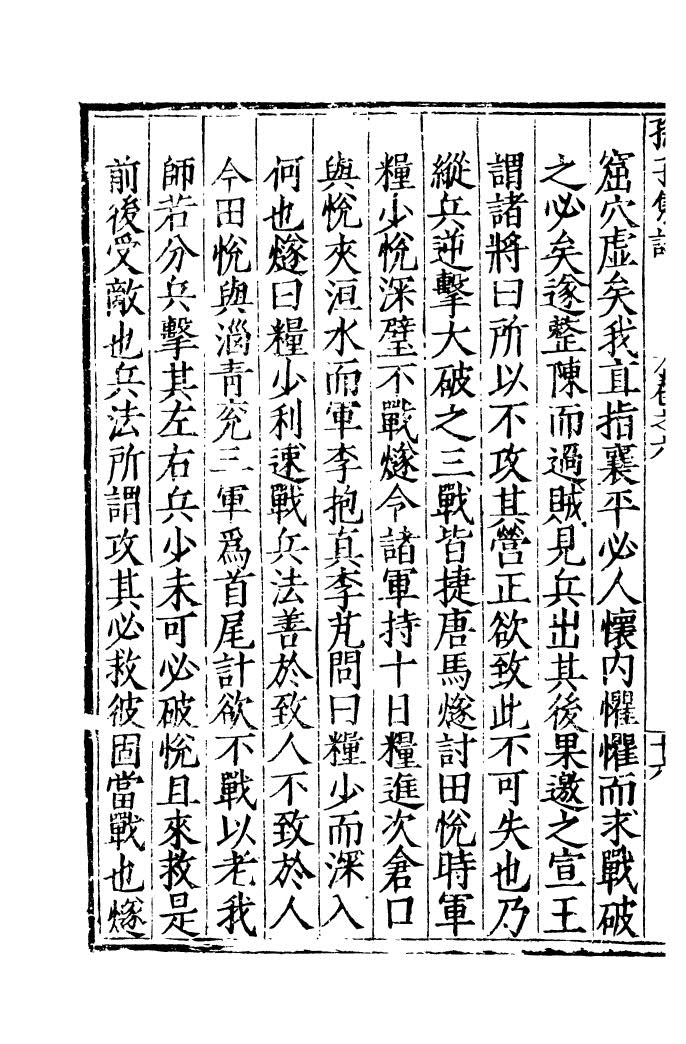 窟穴虛矣我直指襄平必人懷內懼懼而求戰破
之必矣遂整陳而過賊見兵出其後果邀之宣王
謂諸將曰所以不攻其營正欲致此不可失也乃
縱兵逆擊大破之三戰皆捷唐馬燧討田悅時軍
糧少悅深壁不戰燧令諸軍持十日糧進次倉口
與悅夾洹水而軍李抱真李芃問曰糧少而深入
何也燧曰糧少利速戰兵法善於致人不致於人
今田悅與淄青兗三軍爲首尾計欲不戰以老我
師若分兵擊其左右兵少未可必破悅且來救是
前後受敵也兵法所謂攻其必救彼固當戰也燧